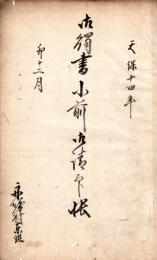 天保十四年
御觸書小前御請印帳
卯十二月